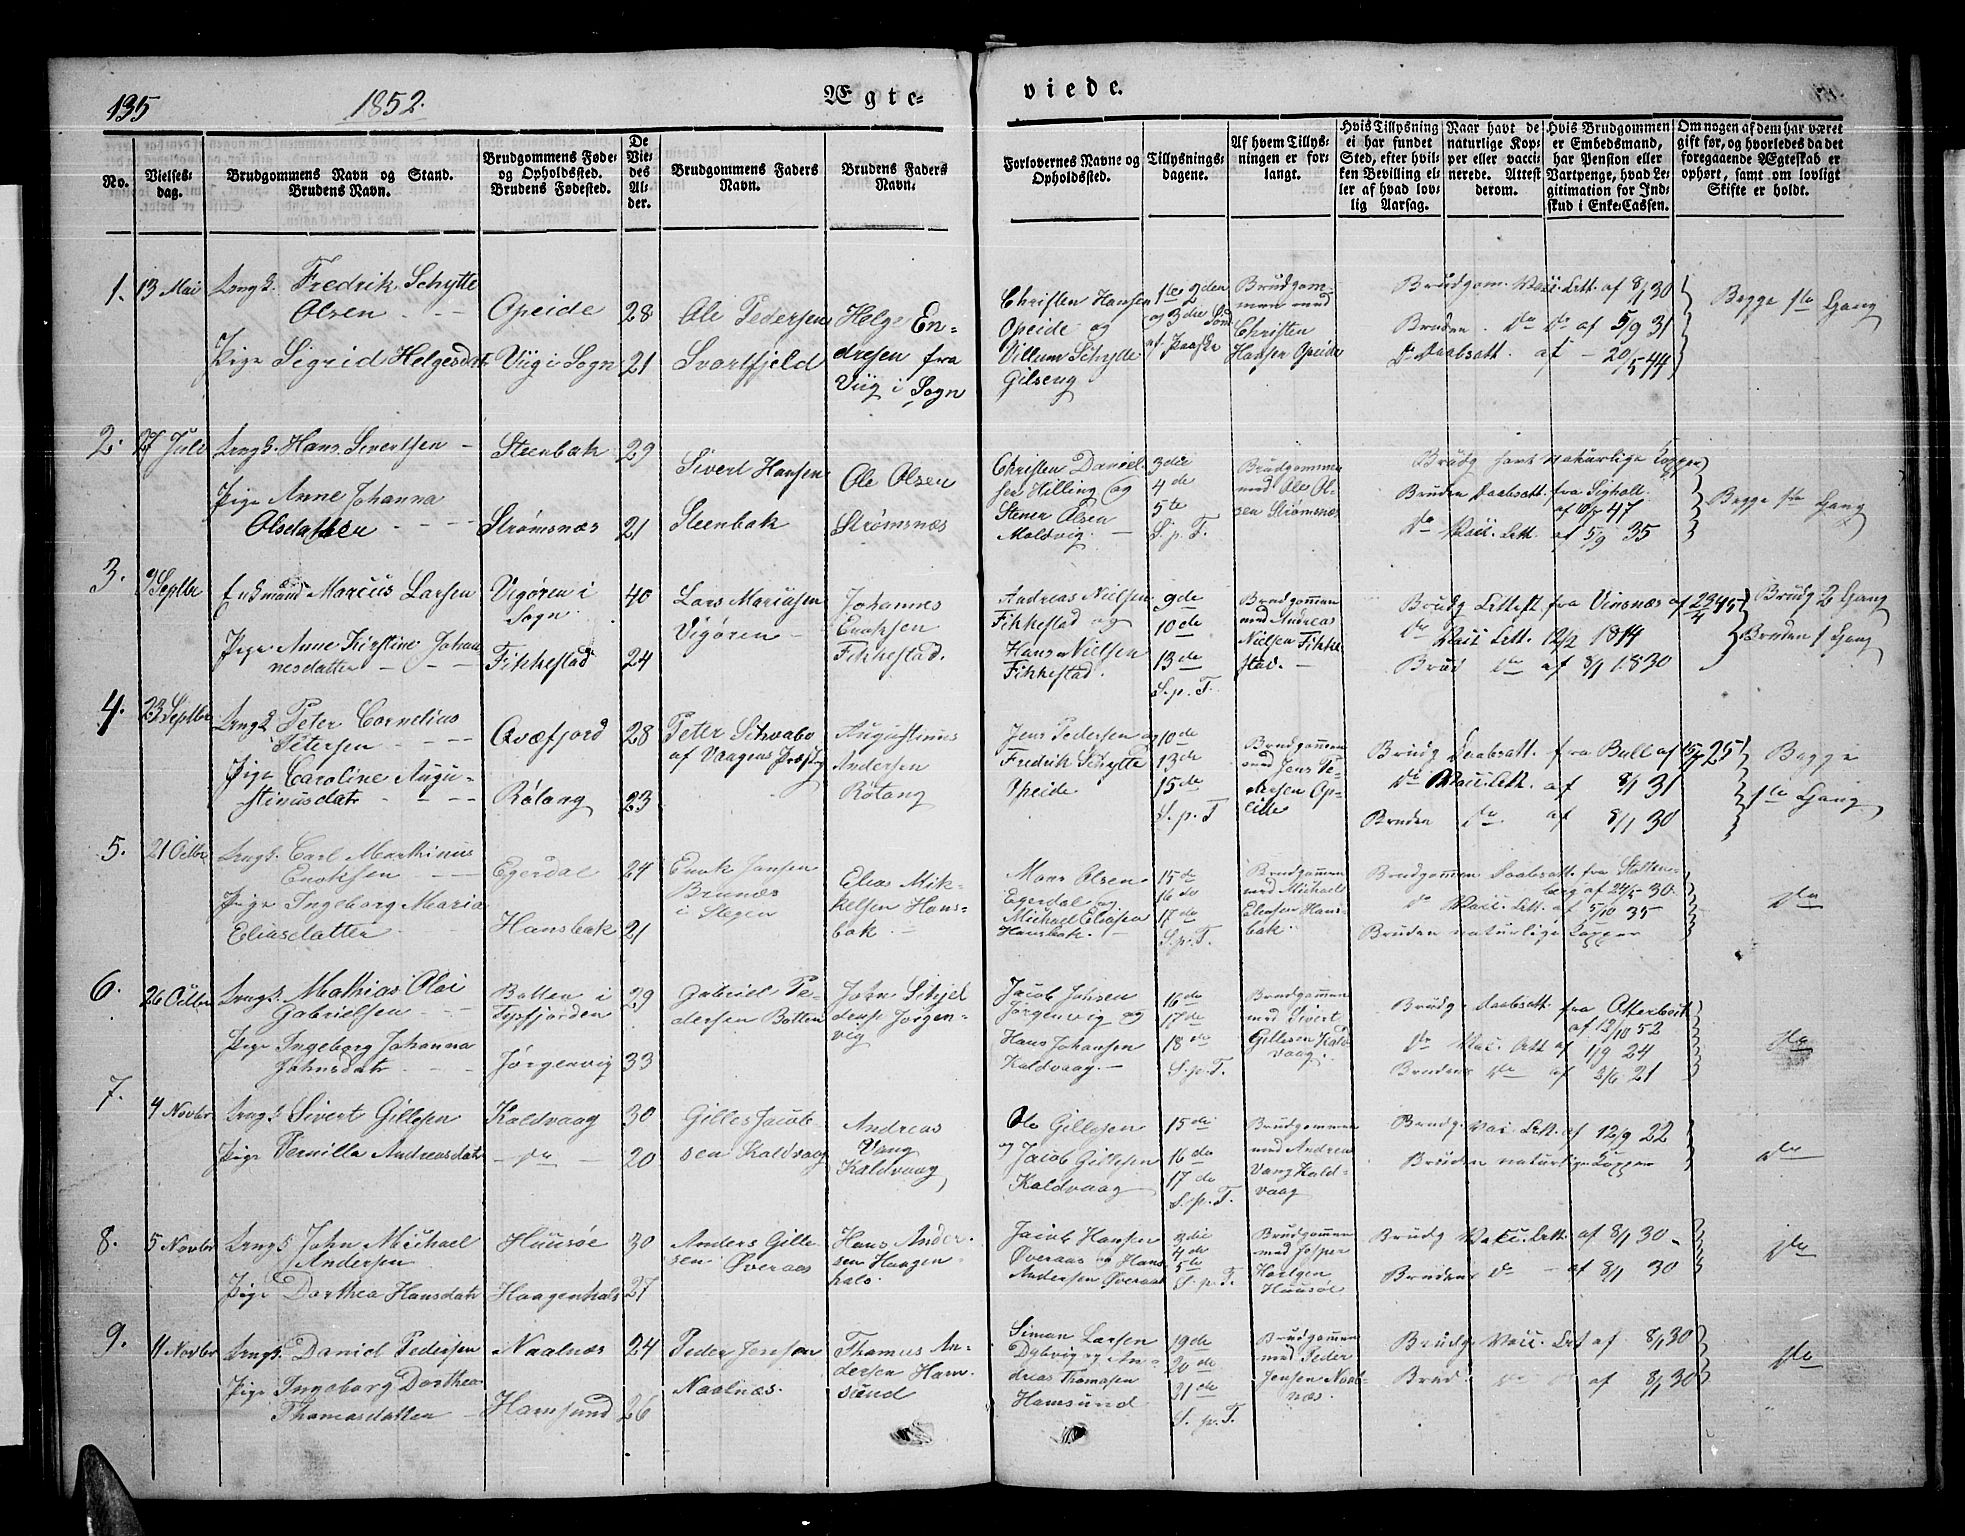 135
1852.
Ægte-
viede.
No.
Vielses-
dag.
Brudgommens Navn og Stand.
Brudens Navn.
Brudgommens Føde-
og Opholdssted.
Brudens Fødested.
De
Vie-
des
Al-
der.
Brudgommens Faders
Navn.
Brudens Faders
Navn.
Forlovernes Navne og
Opholdssted.
Tillysnings-
dagene.
Af hvem Tillys-
ningen er for-
langt.
Hvis Tillysning
ei har fundet
Sted, efter hvil-
ken Bevilling el-
ler af hvad lov-
lig Aarsag.
Naar havt de
naturlige Kop-
per eller vacci-
nerede. Attest
derom.
Hvis Brudgommen
er Embedsmand,
har Pension eller
Vartpenge, hvad Le-
gitimation for Ind-
skud i Enke-Cassen.
Om nogen af dem har været
gift før, og hvorledes da det
foregaaende Ægteskab er
ophørt, samt om lovligt
Skifte er holdt.
1. 13 Mai
Ungk. Fredrik Schytte
Olsen
Pige Sigrid Helgesdtr
Opeide
Viig i Sogn
28
21
Ole Pedersen
Svartfjeld
Helge En-
dresen fra
Viig i Sogn
Christen Hansen
Opeide og
Villum Schytte
Gilseng
1ste 2den
og 3die Sønd
af Paaske
Brudgom-
men med
Christen
Hansen Opeide
Brudgom. Vacc. Att. af 8/1 30
Bruden do do af 5/9 31
do Daabsatt. af 20/5 44
Begge 1ste Gang
2. 27 Juli
Ungk. Hans Sivertsen
Pige Anne Johanna
Olsdatter
Steenbak
Strømsnæs
29
21
Sivert Hansen
Steenbak
Ole Olsen
Strømsnæs
Christen Daniel-
sen Hilling og
Stener Olsen
Maldvig.
3die
4de
5te
S. p. T.
Brudgommen
med Ole Ol-
sen Strømsnæs
Brudg havt naturlige Kopper
Bruden Daabsatt. fra
do Vacc. Att. af 5/9 35
Begge 1ste Gang
3. 9 Septbr
Enkemand Marcus Larsen
Pige Anne Kirstine Johan
nesdatter
Vigøren i
Sogn
Fikkestad
40
24
Lars Mariusen
Vigøren
Johannes
Enoksen
Fikkestad.
Andreas Nielsen
Fikkestad og
Hans Nielsen
Fikkestad.
9de
10de
13de
S. p. T.
Brudgommen
med Andreas
Nielsen Fikke
stad.
Brudg Attest fra Vinsnæs af 23/4 45
do Vacc Att. 12/2 1814
Brud do af 8/1 1830
Brudg 2 Gang
Bruden 1 Gang
4. 23 Septbr
Ungk Peter Cornelius
Petersen
Pige Caroline Augu-
stinusdatr
Qvæfjord
Røtang
28
23
Peter Schvabo
af Vaagens Præstg
Augustinus
Andersen
Røtang
Jens Pedersen og
Fredrik Schytte
Opeide
10de
13de
15de
S. p. T
Brudgommen
med Jens Pe-
dersen Op-
eide
Brudg Daabsatt. fra Bull af 25
do Vacc. Att. af 8/1 31
Bruden do af 8/1 30
Begge
1ste Gang
5. 21 Octbr
Ungk. Carl Marthinus
Enoksen
Pige Ingeborg Maria
Eliasdatter
Egerdal
Hansbak
24
21
Enok Jansen
Brunæs
i Stegen
Elias Mik-
kelsen Hans-
bak.
Mons Olsen
Egerdal og
Michael Eliasen
Hansbak.
15de
16de
17de
S. p. T.
Brudgommen
med Michael
Eliasen Hans-
bak.
Brudgommen Daabsatt. fra Stolten-
berg af 24/5 30.
do Vacc. Att. af 5/10 35
Bruden naturlige Kopper
do
6. 26 Octbr
Ungk. Mathias Olai
Gabrielsen
Pige Ingeborg Johanna
Johnsdatr
Botten i
Tysfjorden
Jørgenvig
29
33
Gabriel Pe-
dersen Botten
John Schjel
derup Jørgen-
vig
Jacob Johsen
Jørgenvig og
Hans Johansen
Kaldvaag.
16de
17de
18de
S. p. T.
Brudgommen
med Sivert
Gillesen Kald
vaag.
Brudg. Daabsatt. fra Atterbeit
af 12/10 52
do Vacc. Att af 1/9 24
Brudens do af 3/6 21
do
7. 4 Novbr
Ungk Sivert Gillesen
Pige Pernilla Andreasdatr
Kaldvaag
do
30
20
Gilles Jacob-
sen Kaldvaag
Andreas
Vang
Kaldvaag
Ole Gillesen
og Jacob Gillesen
Kaldvaag
15de
16de
17de
S. p. T.
Brudgommen
med Andrea
Vang Kald-
vaag
Brudg. Vacc. Att. af 12/9 22
Bruden naturlige Kopper
do
8. 5 Novbr
Ungk John Michael
Andersen
Pige Dorthea Hansdatr
Huusøe
Haagenhals
30
27
Anders Gille
sen Øveraas
Hans Ander
sen Haagen
hals.
Jacob Hansen
Øveraas og Hans
Andersen Øveraas
3die
4de
5te
S. p. T.
Brudgommen
med Jesper
Hartgen
Huusøe
Brudg Vacc. Att. af 8/1 30
Brudens do af 8/1 30
do
9. 11 Novbr
Ungk. Daniel Pedersen
Pige Ingeborg Dorthea
Thomasdatter
Naalnæs
Hamsund
24
26
Peder Jensen
Naalnæs.
Thomas An-
dersen Ham-
sund
Simon Larsen
Dybvig og An-
dreas Thomasen
Hamsund
19de
20de
21de
S. p. T.
Brudgommen
med Peder
Jensen Naal-
næs.
Brudg Vacc. Att af 8/1 30
Brud do af 8/1 30
do